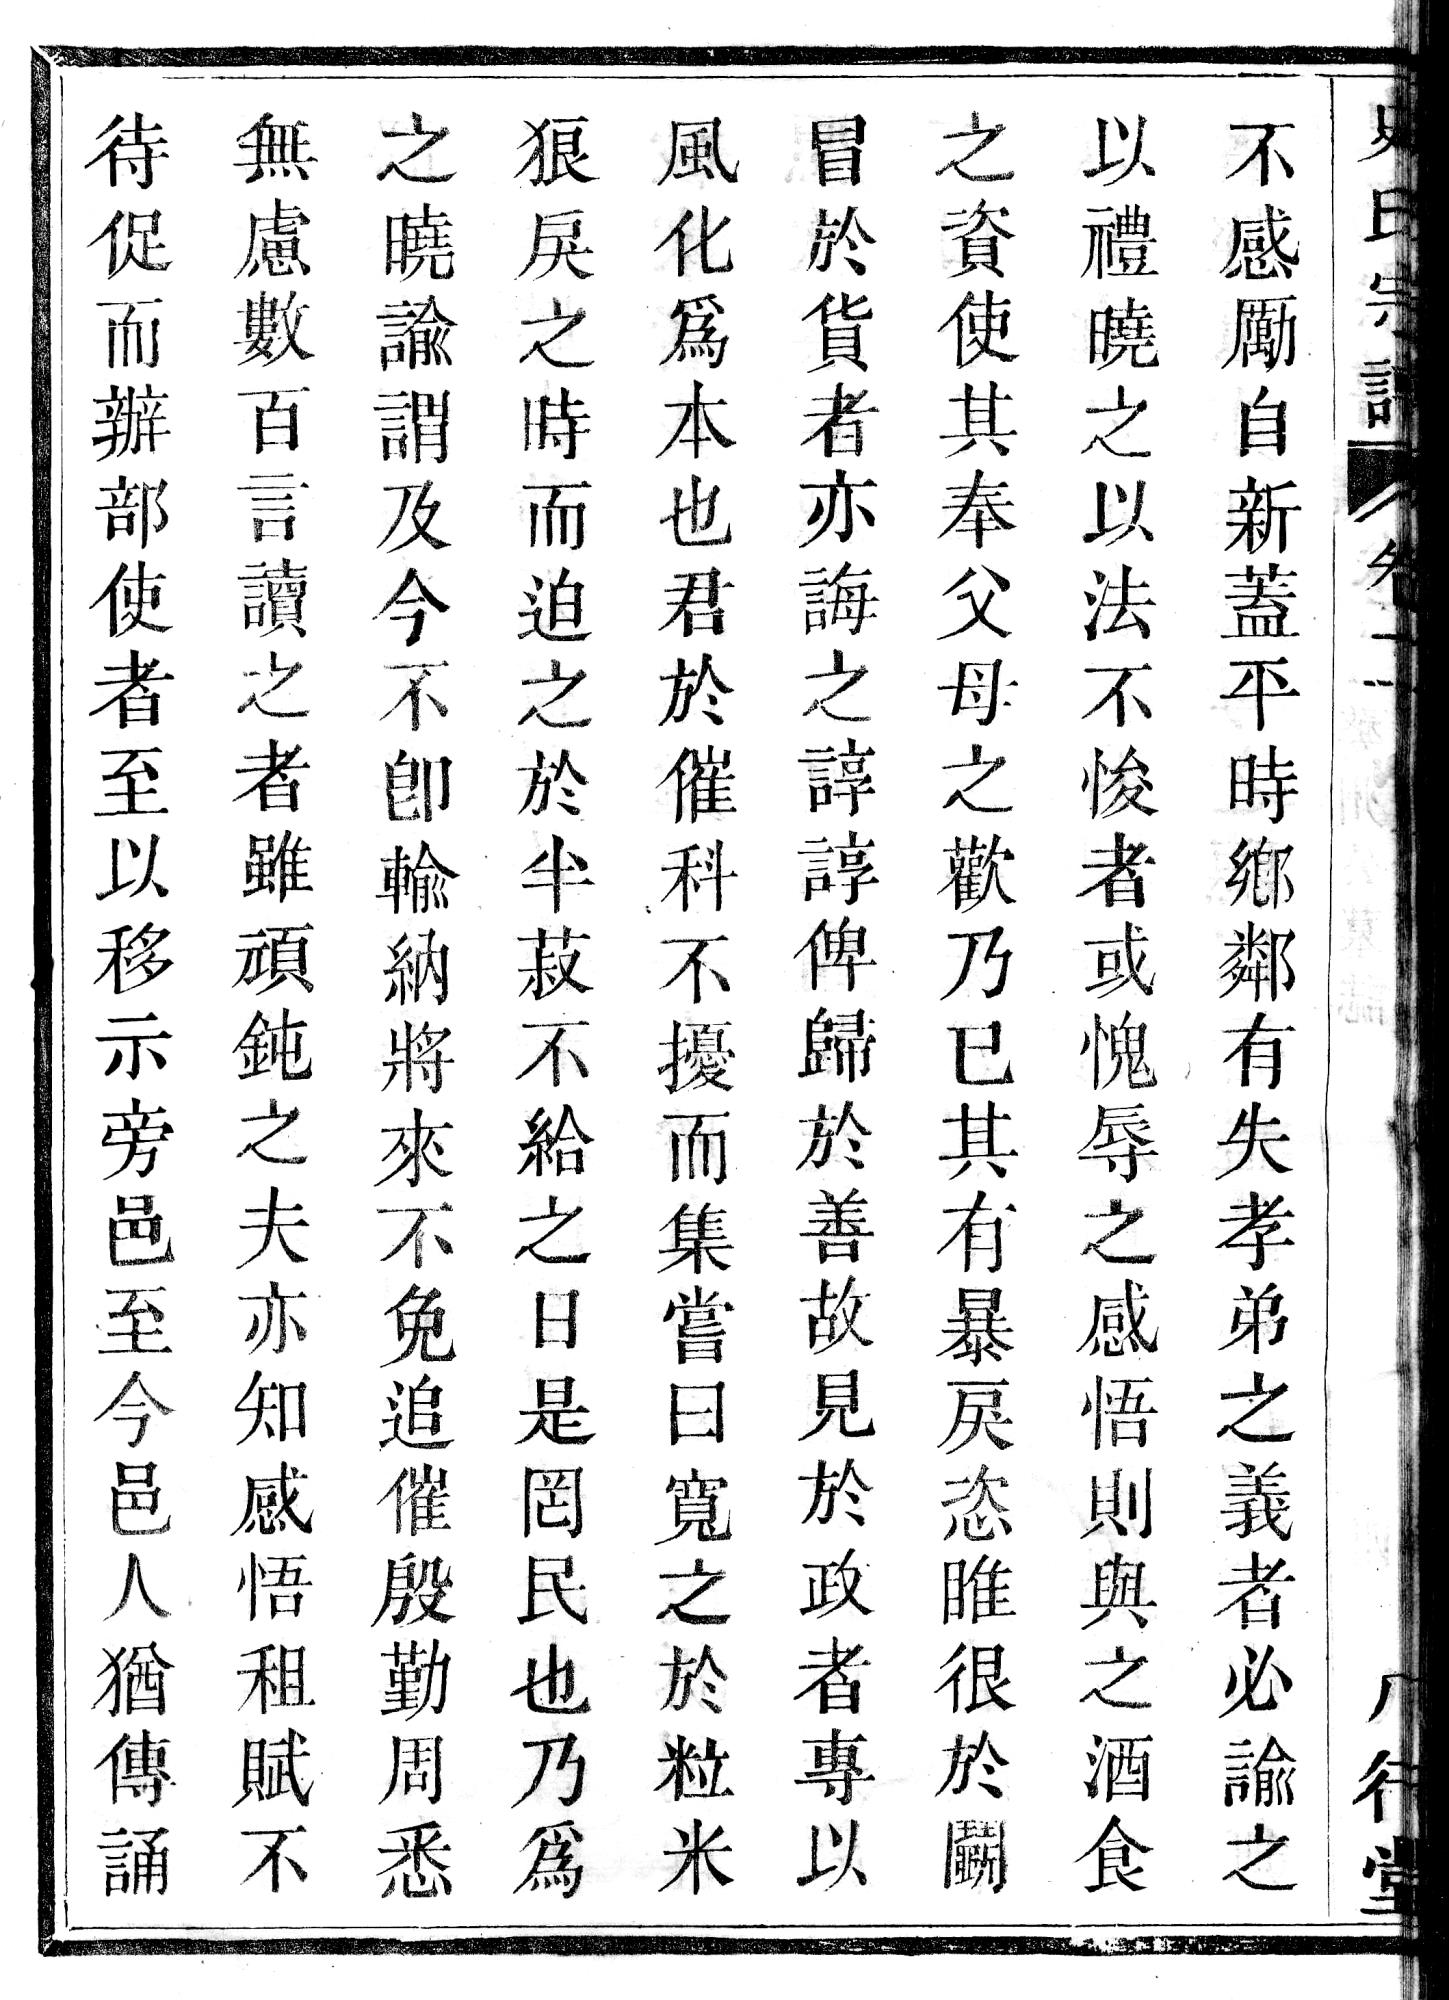 史氏宗譜
卷十一
八行堂
不感勵自新蓋平時鄉鄰有失孝弟之義者必諭之
以禮曉之以法不悛者或愧辱之感悟則與之酒食
之資使其奉父母之歡乃已其有暴戾恣睢很於鬭
冒於貨者亦誨之諄諄俾歸於善故見於政者專以
風化爲本也君於催科不擾而集嘗曰寬之於粒米
狼戾之時而迫之於半菽不給之日是罔民也乃爲
之曉諭謂及今不卽輸納將來不免追催殷勤周悉
無慮數百言讀之者雖頑鈍之夫亦知感悟租賦不
待促而辦部使者至以移示旁邑至今邑人猶傳誦